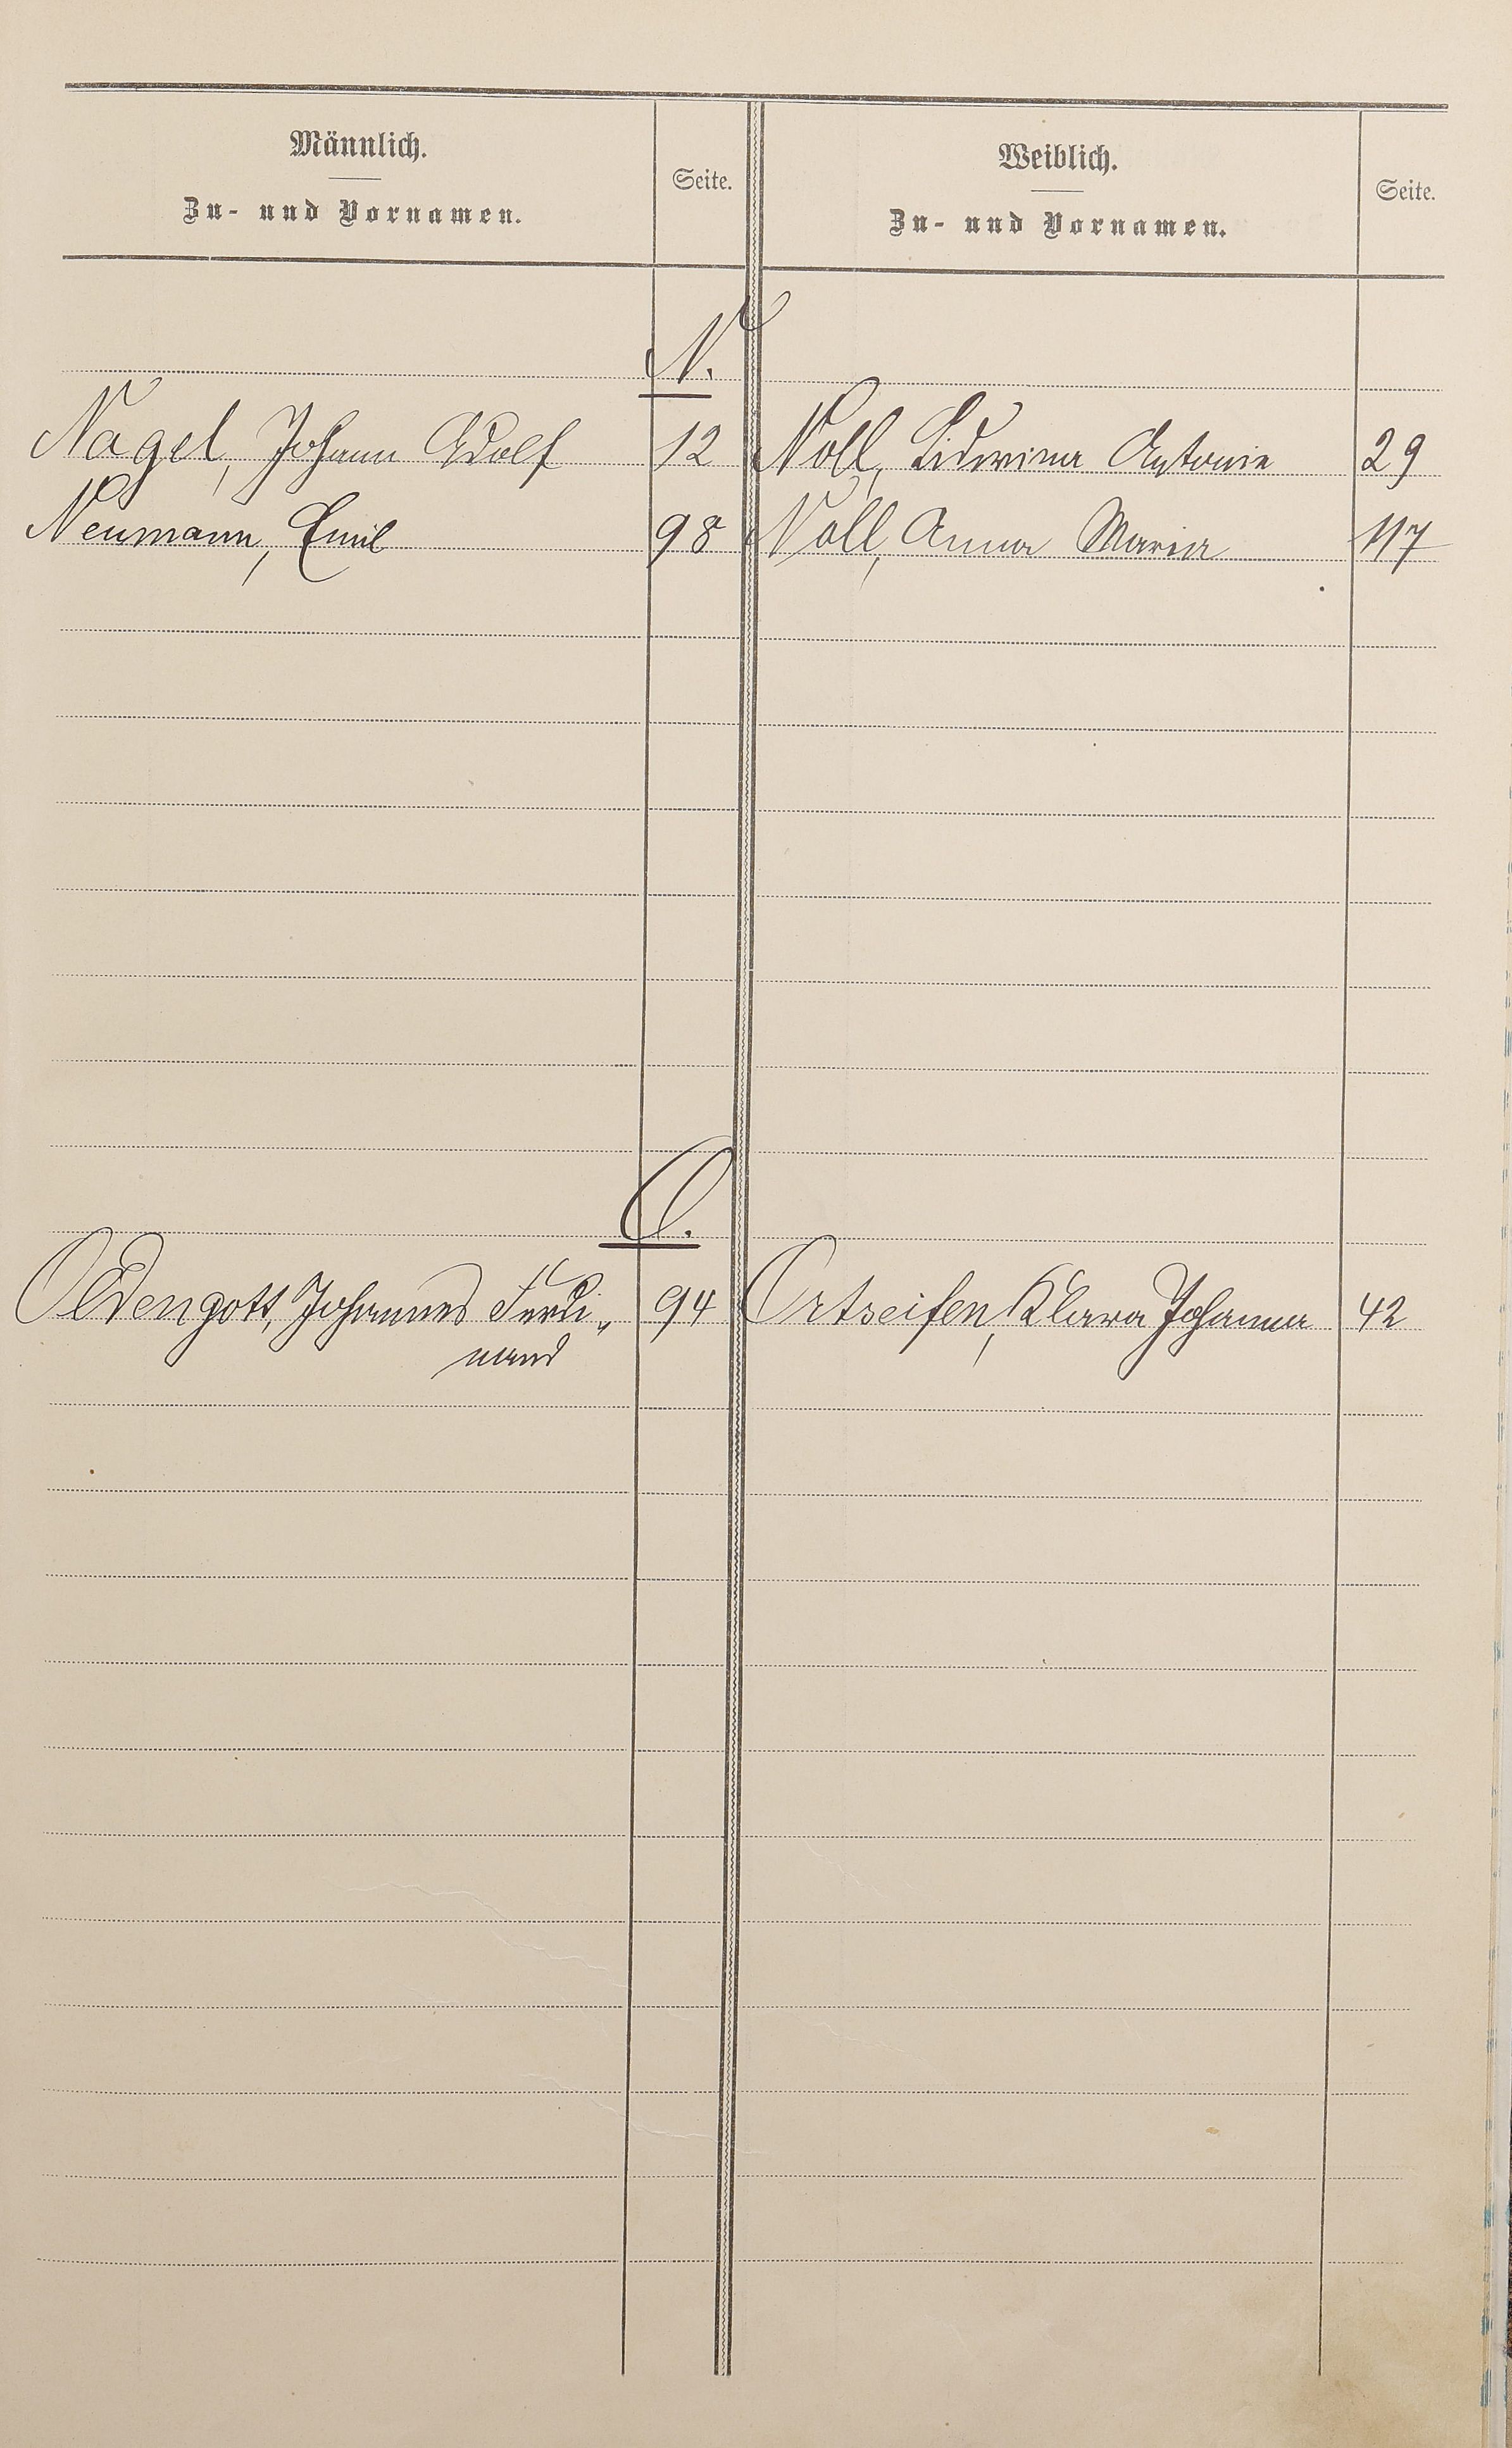 Männlich.
Zu- und Vornamen.
Seite.
Weiblich.
Zu- und Vornamen.
Seite.
N.
Nagel, Johann Adolf 12 Noll, Lidwina Antonie 29
Neumann, Emil 98 Noll, Anna Maria 117
O.
Oldengott, Johannes Ferdi„ 94 Ortseifen, Klara Johanna 42
nand